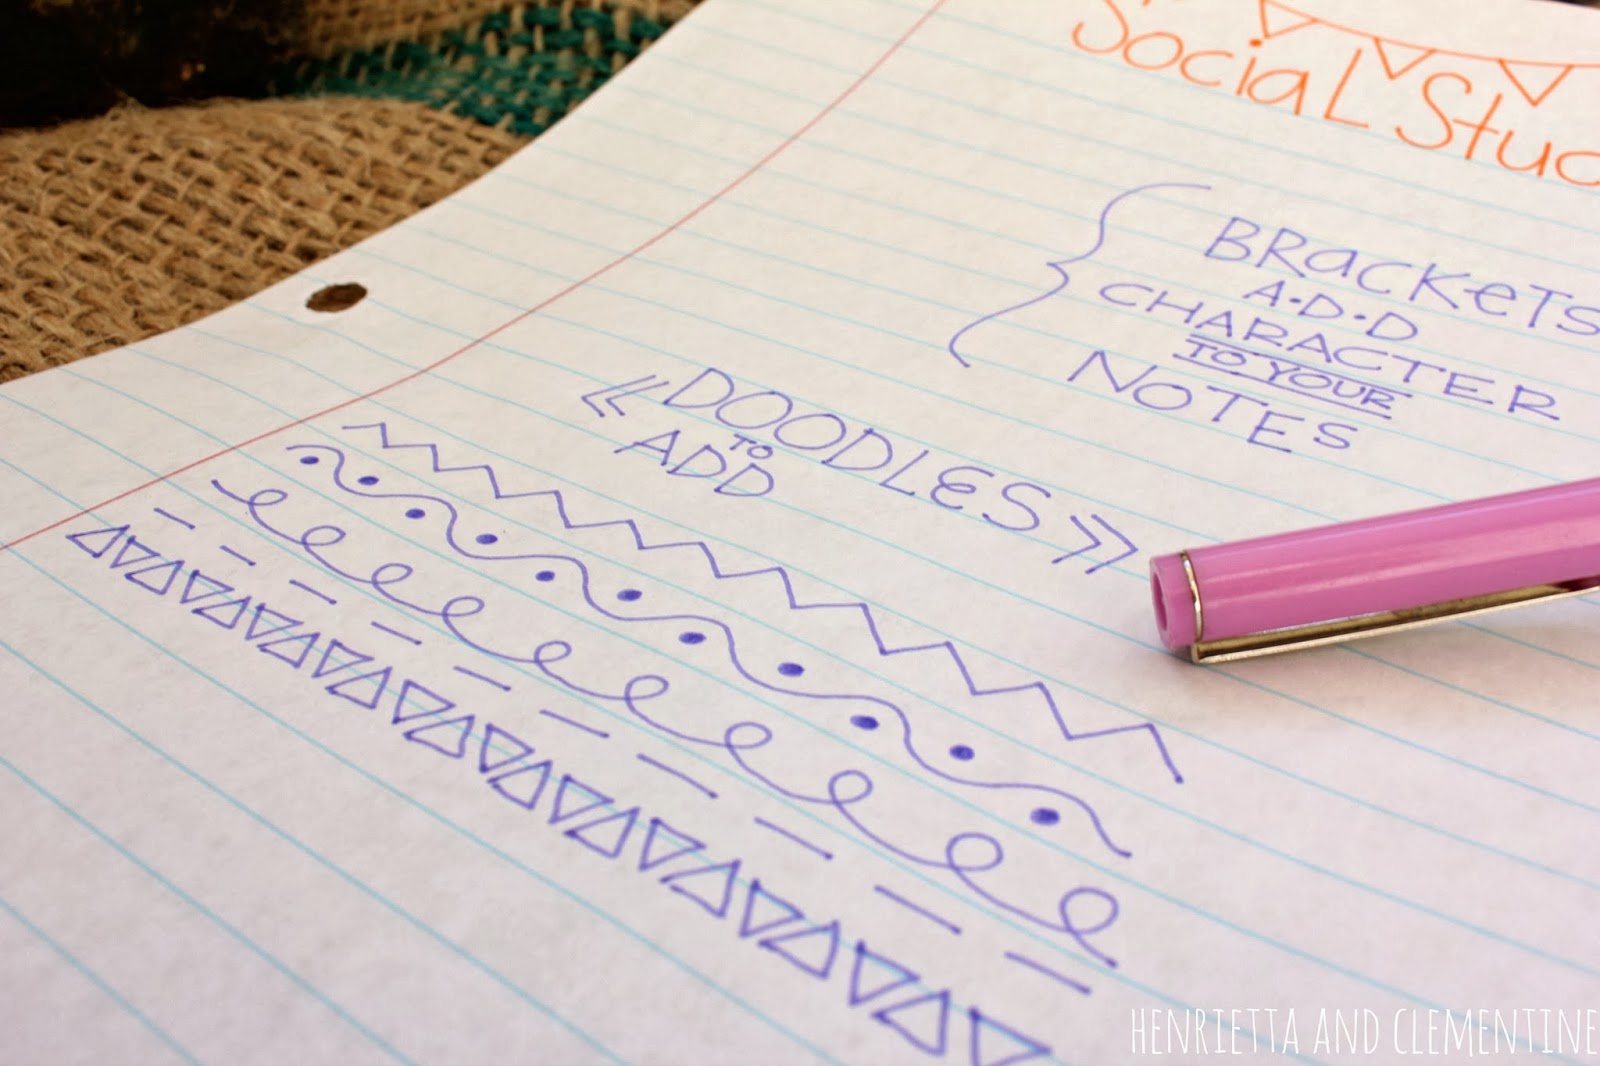 Social Stud
BRackeTS
A·D·D
CHARACTER
TO YOUR
NOTES
« DOODLES »
TO
ADD
HENRIETTA AND CLEMENTINE